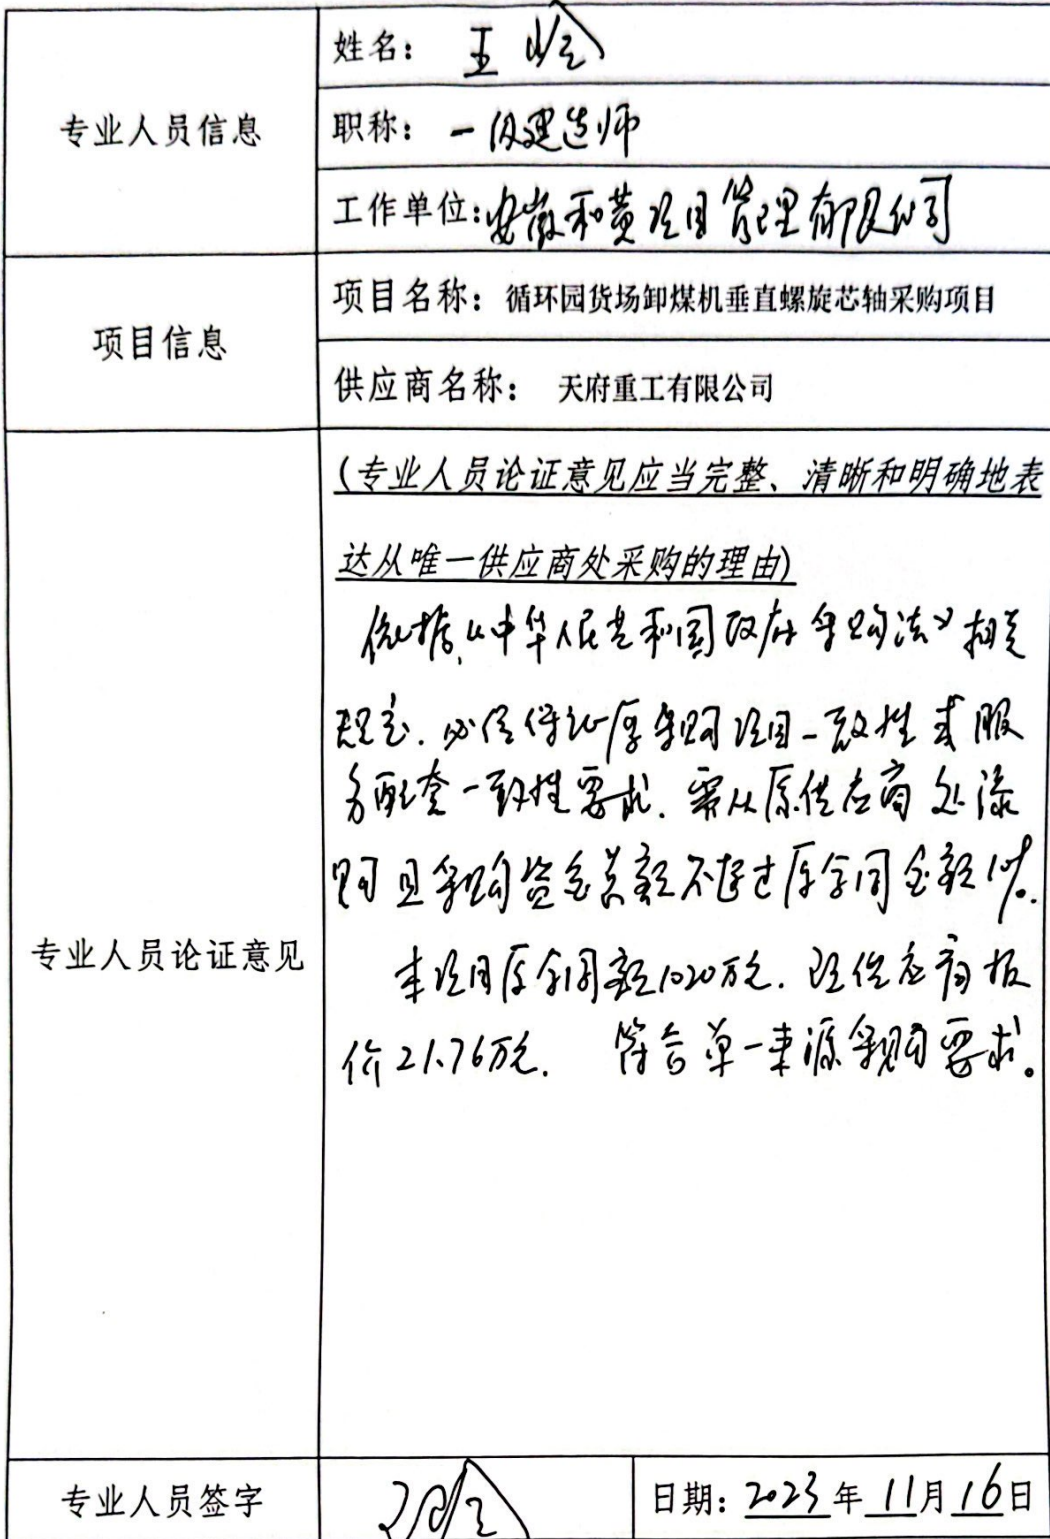 姓名：王
专业人员信息
职称：一级建造师
工作单位：安徽和黄项目管理有限公司
项目信息
项目名称：循环园货场卸煤机垂直螺旋芯轴采购项目
供应商名称：天府重工有限公司
专业人员论证意见
(专业人员论证意见应当完整、清晰和明确地表
达从唯一供应商处采购的理由)
依据《中华人民共和国政府采购法》相关
规定.必须保证原采购项目一致性或服
务配套一致性要求.需从原供应商处添
购且采购资金总额不超过原合同金额10%.
本项目原合同额1020万元.现供应商报
价21.76万元. 符合单一来源采购要求。
专业人员签字
日期：2023年11月16日